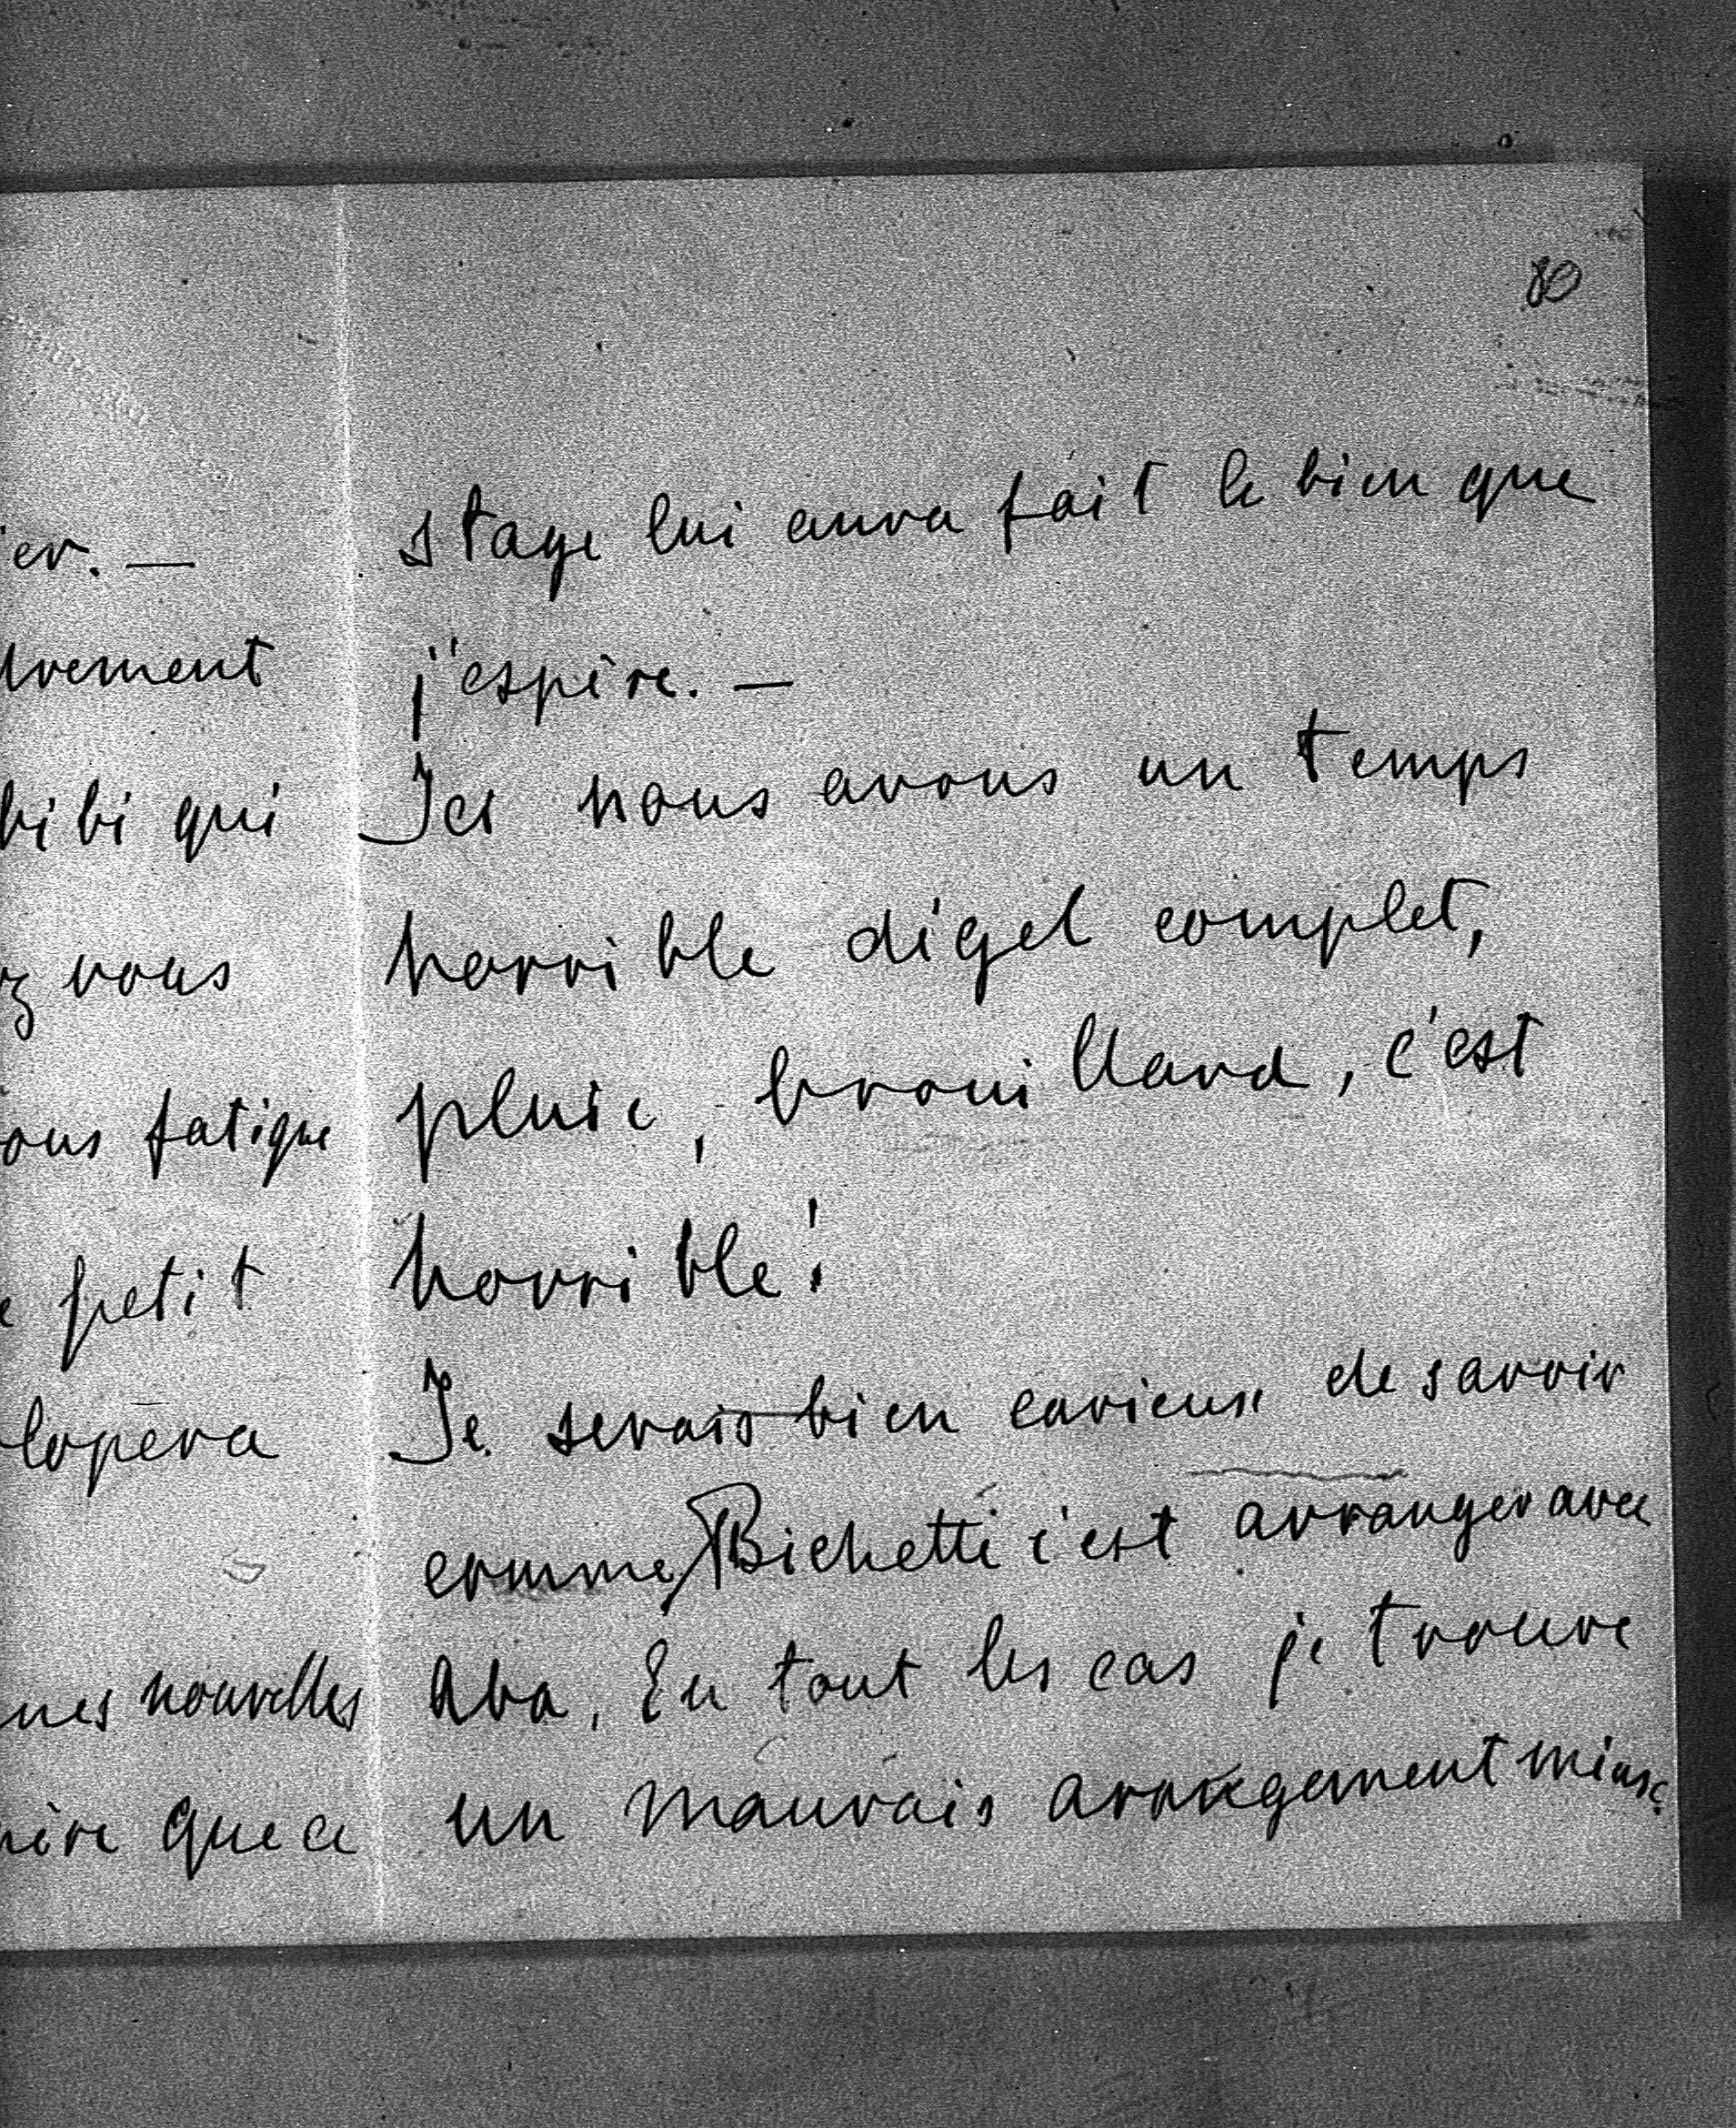 80
er. —
drement
bibi qui
z vous
ous fatigue
petit
lopera
nes nouvelles
ire que ce
stage lui aura fait le bien que
j'espère. —
Ici nous avons un temps
horrible dégel complet,
pluie, brouillard, c'est
horrible!
Je serais bien curieux de savoir
comme Bichette c'est arranger avec
Aba. En tout les cas je trouve
un mauvais arrangement